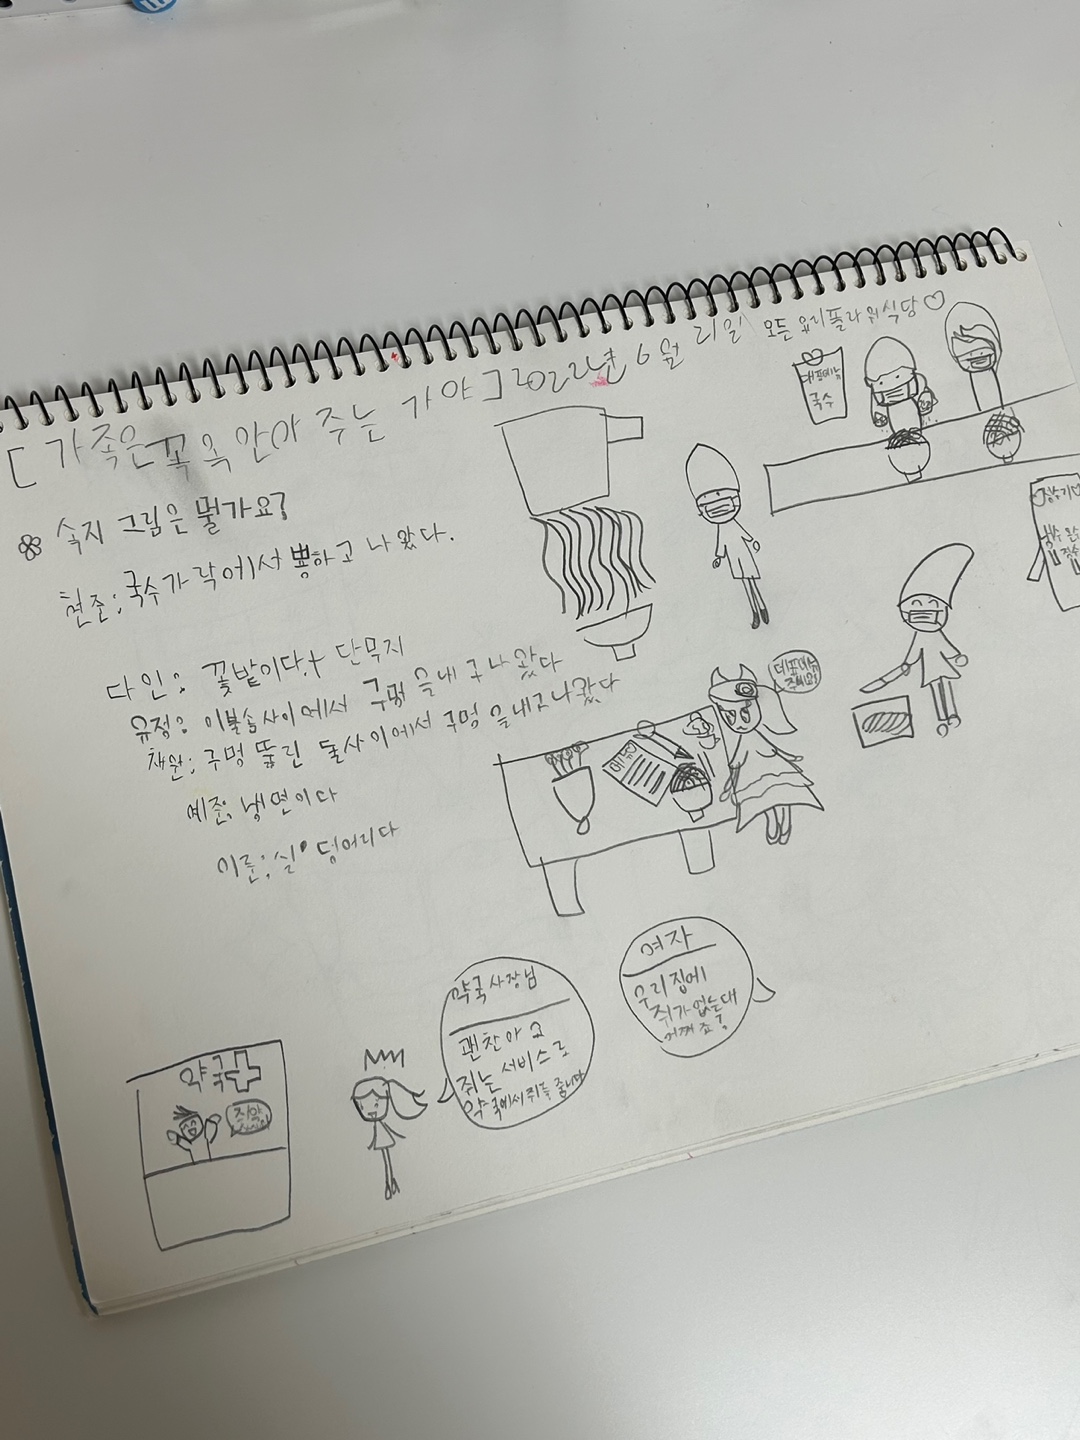 [ 가족은 꼭 옥 안아 주는 거야 ] 2022년 6월 21일
모든 요리 폴라워식당♡
대표메뉴
국수
속지 그림은 뭘가요?
현준: 국수가락에서 뿅하고 나왔다.
다인: 꽃밭이다.+ 단무지
유정: 이불솜사이에서 구멍을내구나왔다
채원: 구멍 뚫린 돌사이에서 구멍을내고나왔다
예준: 냉면이다
이룬: 실 덩어리다
메뉴
주세요!
여자
우리 집에
쥐가 없는대
어쩌죠?
약국사장님
괜찬아요
쥐는 서비스로
약국에서 쥐를 줍니다
약국
쥐약